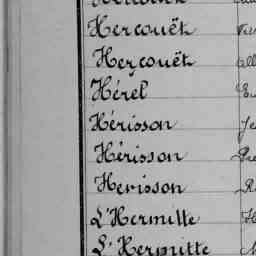 Hercouët
Herçouët
Hérel
Hérisson
Hérisson
Herisson
L'Hermitte
L'Hermitte